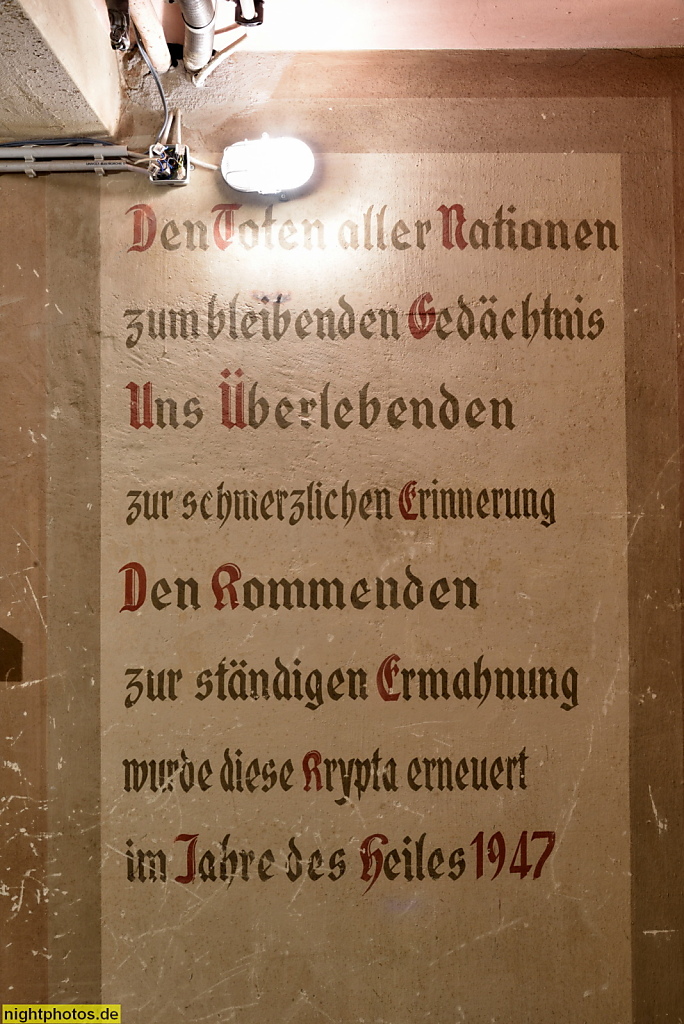 Den Toten aller Nationen
zum bleibenden Gedächtnis
Uns Überlebenden
zur schmerzlichen Erinnerung
Den Kommenden
zur ständigen Ermahnung
wurde diese Krypta erneuert
im Jahre des Heiles 1947
nightphotos.de